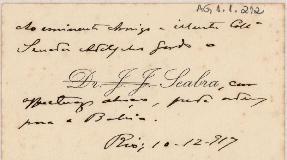 AG, 1. 1. 292
Ao eminente Amigo e illustre Coll.ª
Senador Adolpho Gordo o
Dr. J. J. Seabra, com
affectuoso abraço, pede
para a Bahia.
Rio, 10-12-917